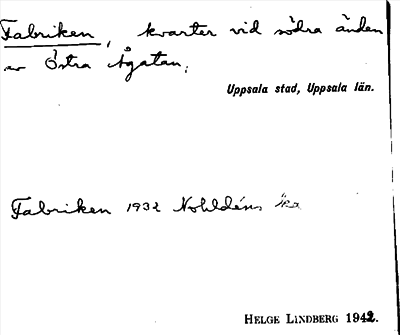 Fabriken, kvarter vid södra änden
av Östra Ågatan.
Uppsala stad, Uppsala län.
Fabriken 1932 Nohldéns
HELGE LINDBERG 1942.